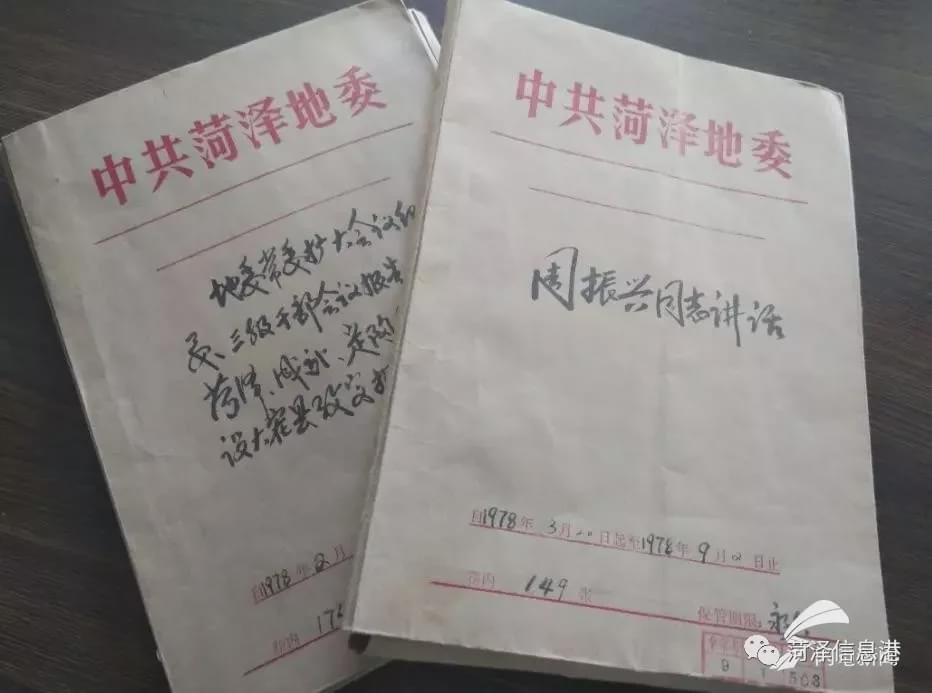 中共菏泽地委
地委常委扩大会议纪
要、三级干部会议报告
菏泽、成武、定陶
设大寨县
自1978年2月
卷内 175
中共菏泽地委
周振兴同志讲话
自1978年3月20日起至1978年9月2日止
卷内 149 张
保管期限:永久
9 1 503
菏泽信息港